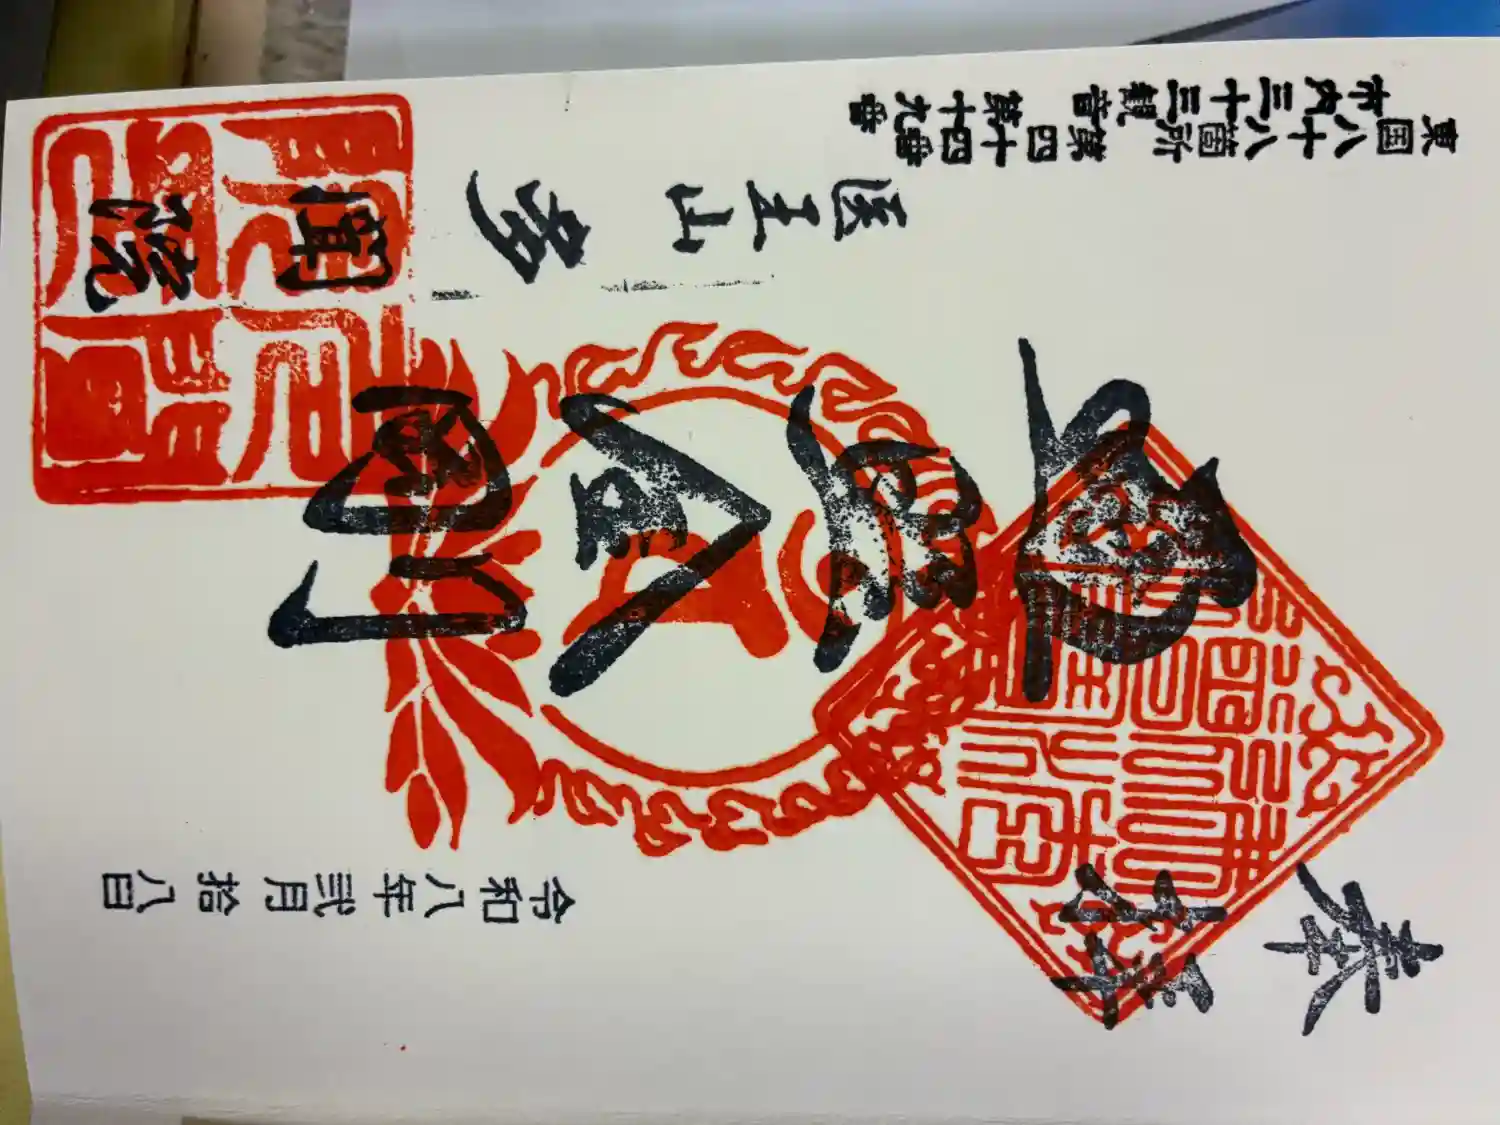 奉拝
令和八年弐月拾八日
遍照金剛
医王山 多聞院
東国八十八箇所 第四十四番
市内三十三観音 第十九番